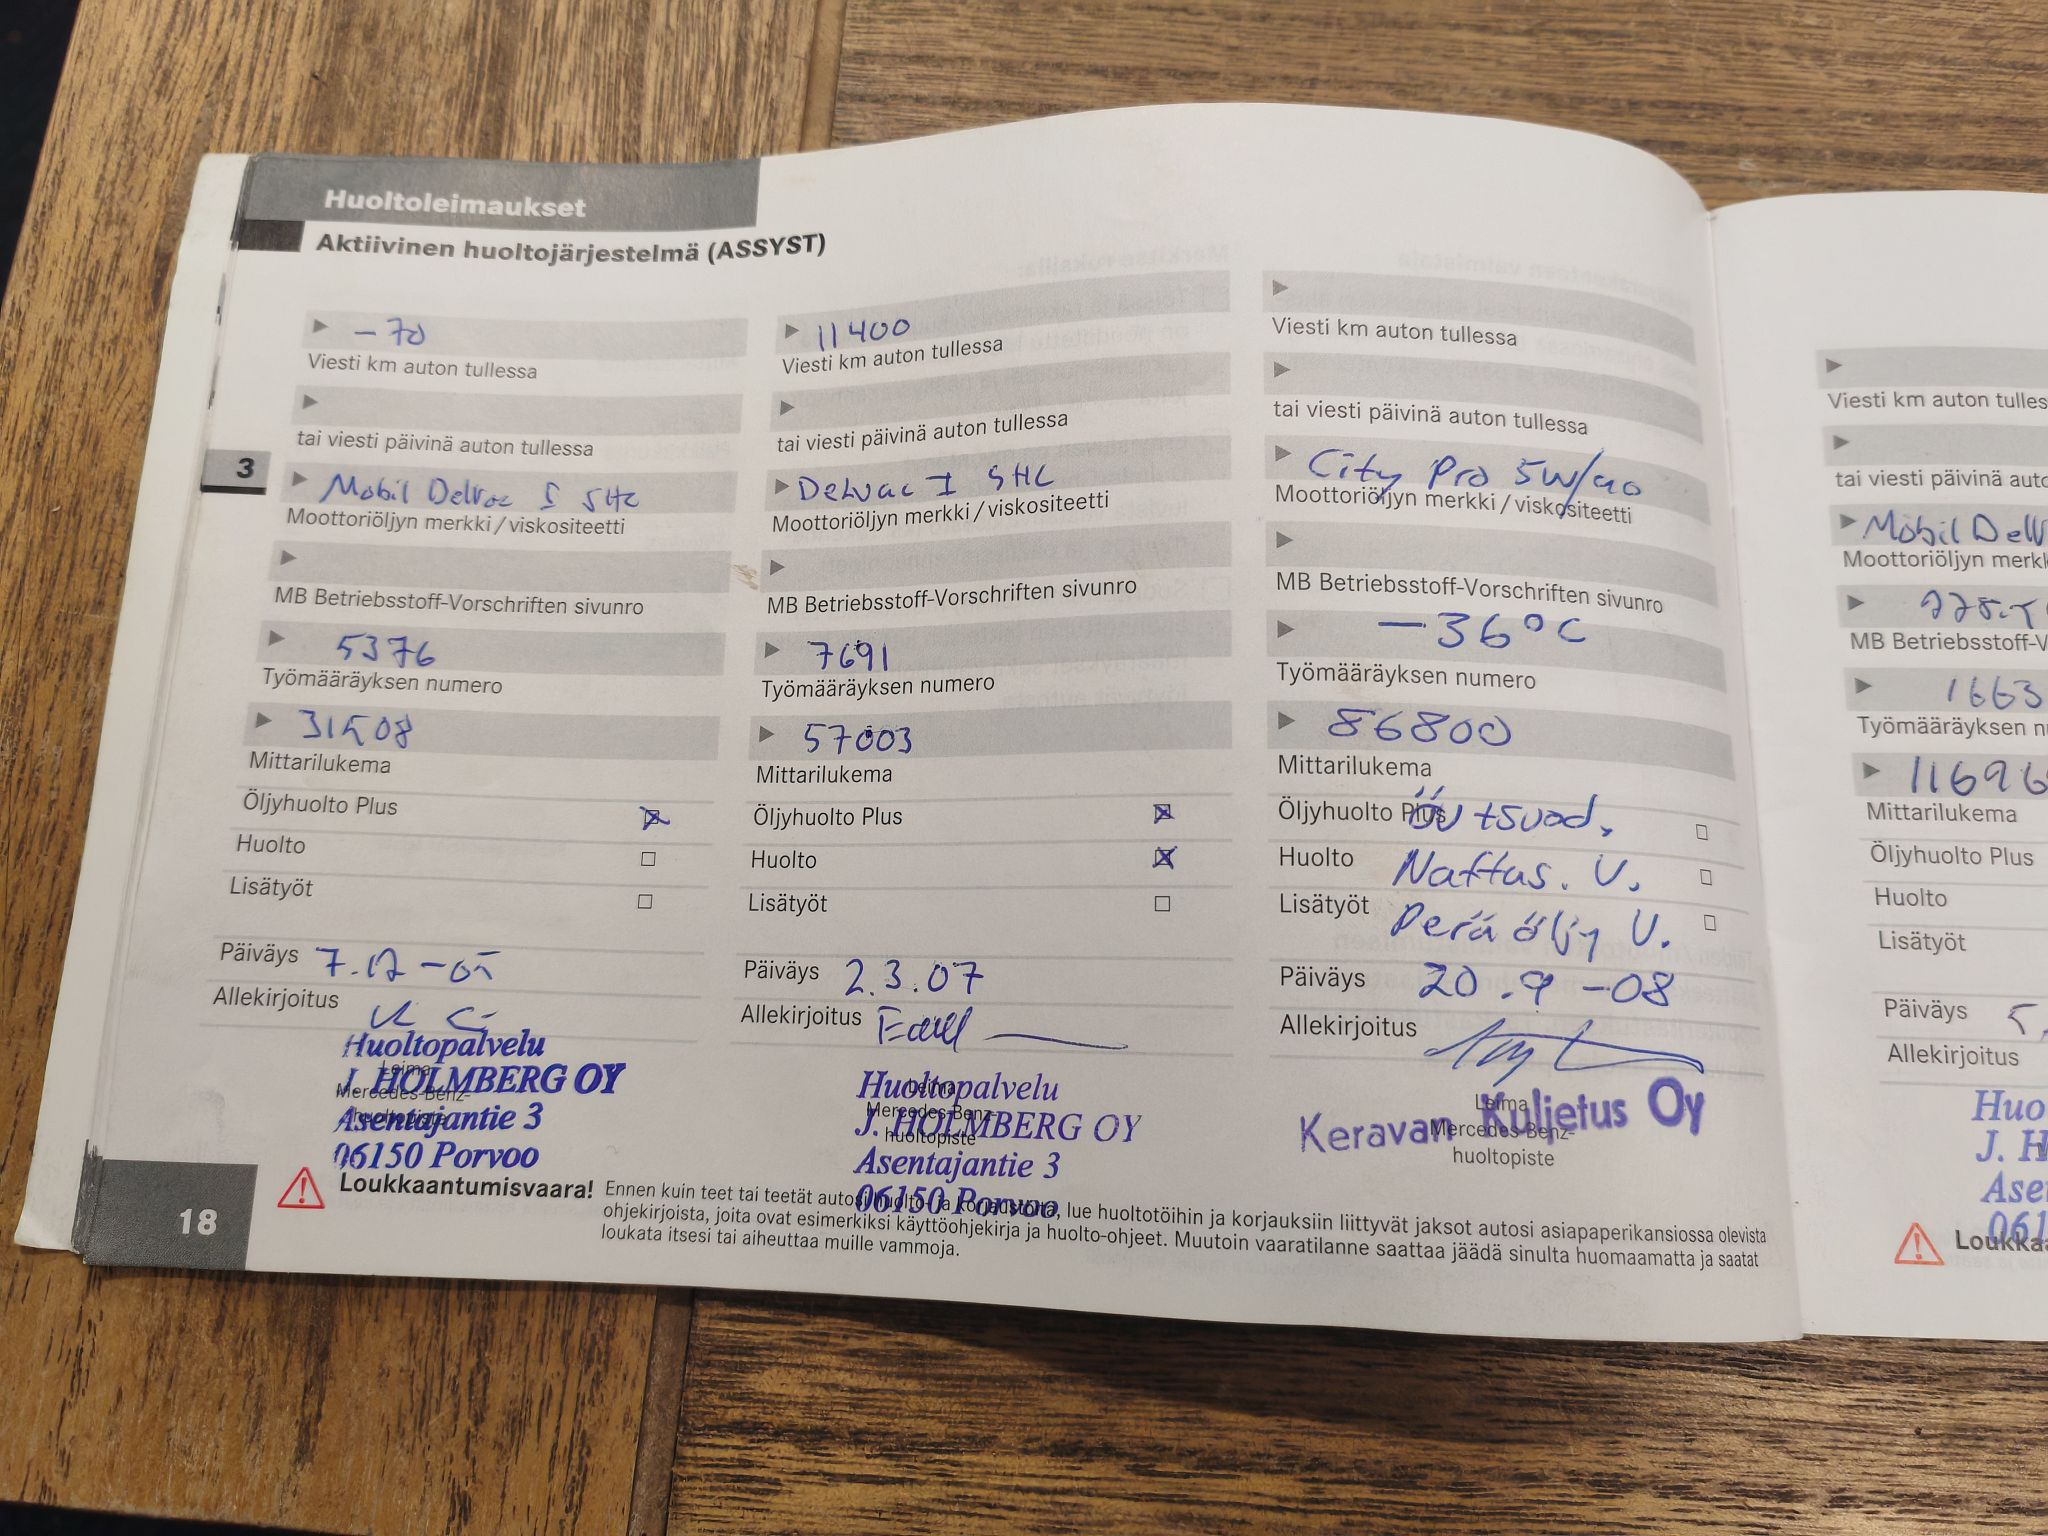 Huoltoleimaukset
Aktiivinen huoltojärjestelmä (ASSYST)
3
– 70
Viesti km auton tullessa
tai viesti päivinä auton tullessa
Mobil Delvac I SHC
Moottoriöljyn merkki / viskositeetti
MB Betriebsstoff-Vorschriften sivunro
5376
Työmääräyksen numero
31508
Mittarilukema
Öljyhuolto Plus
Huolto
Lisätyöt
Päiväys 7.12 -05
Allekirjoitus
Huoltopalvelu
J. HOLMBERG OY
Asentajantie 3
06150 Porvoo
Leima
Mercedes-Benz-
huoltopiste
11400
Viesti km auton tullessa
tai viesti päivinä auton tullessa
Delvac I SHC
Moottoriöljyn merkki / viskositeetti
MB Betriebsstoff-Vorschriften sivunro
7691
Työmääräyksen numero
57003
Mittarilukema
Öljyhuolto Plus
Huolto
Lisätyöt
Päiväys 2.3.07
Allekirjoitus
Huoltopalvelu
J. HOLMBERG OY
Asentajantie 3
06150 Porvoo
Leima
Mercedes-Benz-
huoltopiste
Viesti km auton tullessa
tai viesti päivinä auton tullessa
City Pro 5W/40
Moottoriöljyn merkki / viskositeetti
MB Betriebsstoff-Vorschriften sivunro
– 36°C
Työmääräyksen numero
86800
Mittarilukema
Öljyhuolto Plus Öv +suod.
Huolto Naftas. V.
Lisätyöt Perä öljy V.
Päiväys 20.9 -08
Allekirjoitus
Keravan Kuljetus Oy
Leima
Mercedes-Benz-
huoltopiste
Loukkaantumisvaara! Ennen kuin teet tai teetät autosi huolto- ja korjaustöitä, lue huoltotöihin ja korjauksiin liittyvät jaksot autosi asiapaperikansiossa olevista
ohjekirjoista, joita ovat esimerkiksi käyttöohjekirja ja huolto-ohjeet. Muutoin vaaratilanne saattaa jäädä sinulta huomaamatta ja saatat
loukata itsesi tai aiheuttaa muille vammoja.
18
Viesti km auton tulles
tai viesti päivinä auto
Mobil Delv
Moottoriöljyn merkk
MB Betriebsstoff-V
1663
Työmääräyksen nu
11696
Mittarilukema
Öljyhuolto Plus
Huolto
Lisätyöt
Päiväys 5.
Allekirjoitus
Huo
J. H
Ase
061
Loukka